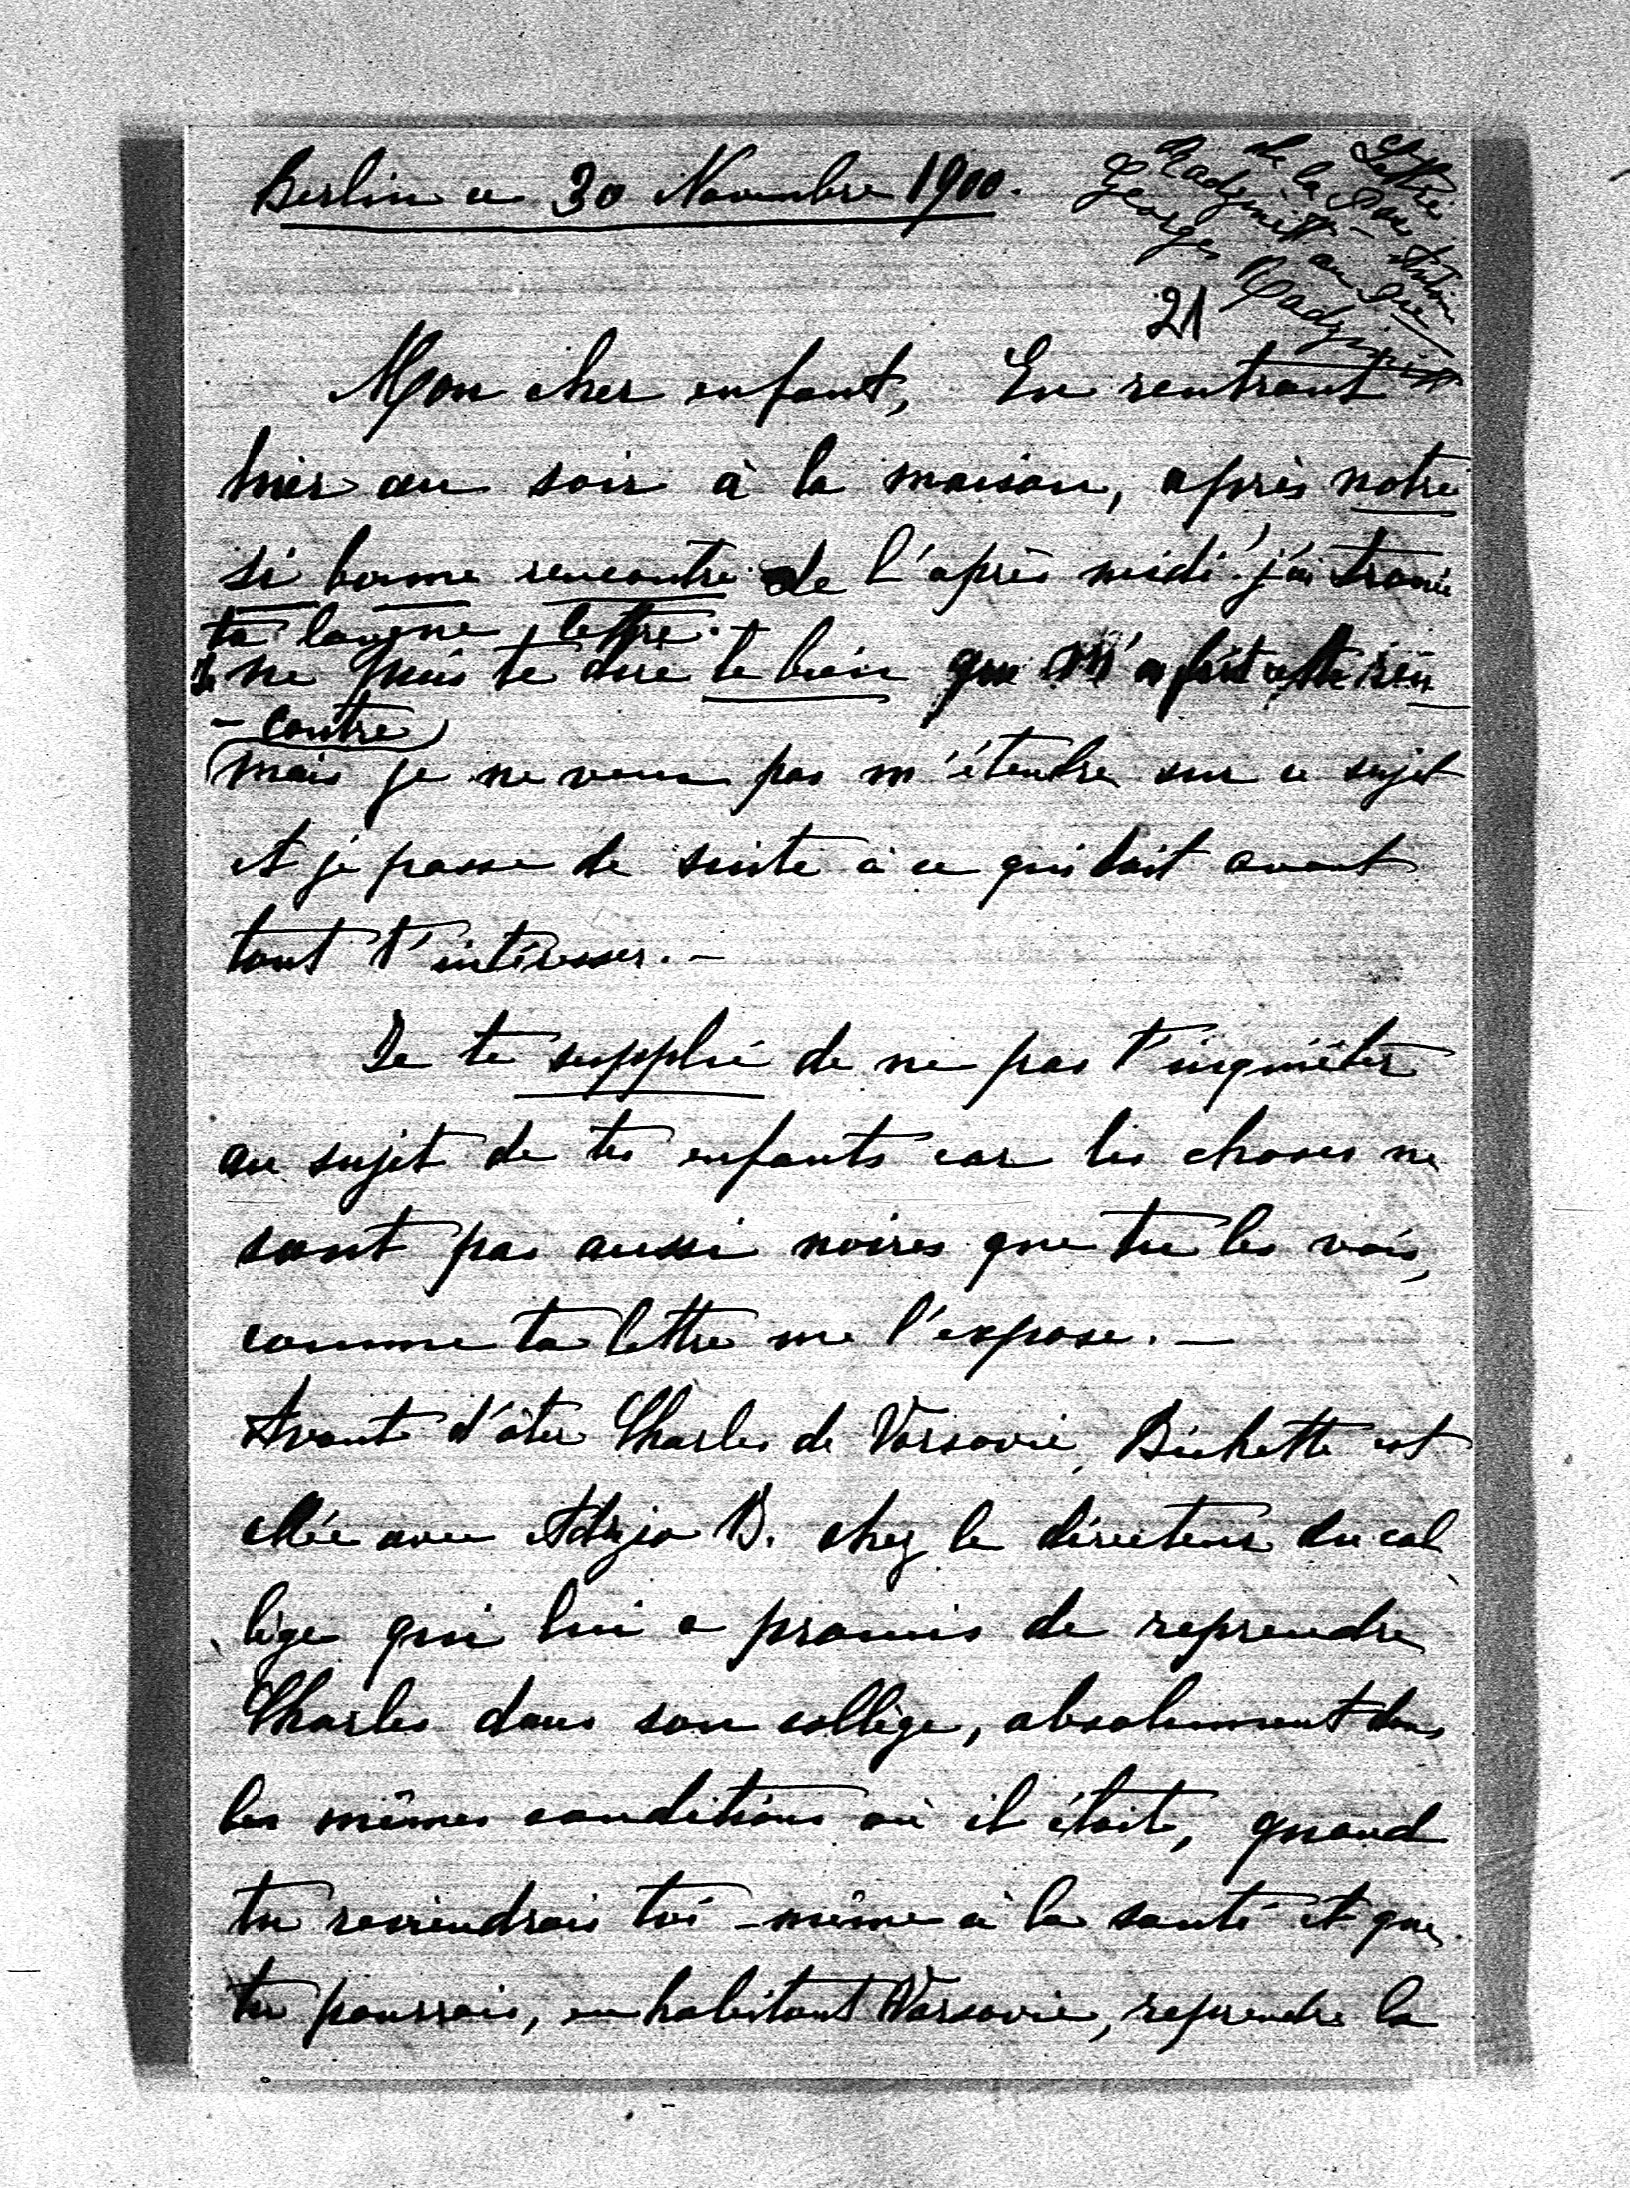 Berlin ce 30 Novembre 1900.
Lettre
de la Psse Antoine
Radziwill au Pce
Georges Radziwill
21
Mon cher enfant, En rentrant
hier au soir à la maison, après notre
si bonne rencontre de l'après midi j'ai trouvé
ta longue lettre.
Je ne puis te dire le bien que m'a fait cette ren
- contre
mais je ne veux pas m'étendre sur ce sujet
et je passe de suite à ce qui doit avant
tout t'intéresser. -
Je te supplie de ne pas t'inquiéter
au sujet de tes enfants car les choses ne
sont pas aussi noires que tu les vois,
comme ta lettre me l'expose. -
Avant d'ôter Charles de Varsovie, Bichette est
allée avec Adzio B. chez le directeur du col
lège qui lui a promis de reprendre
Charles dans son collège, absolument dans
les mêmes conditions où il était, quand
tu reviendrais toi-même à la santé et que
tu pourrais, en habitant Varsovie, reprendre la